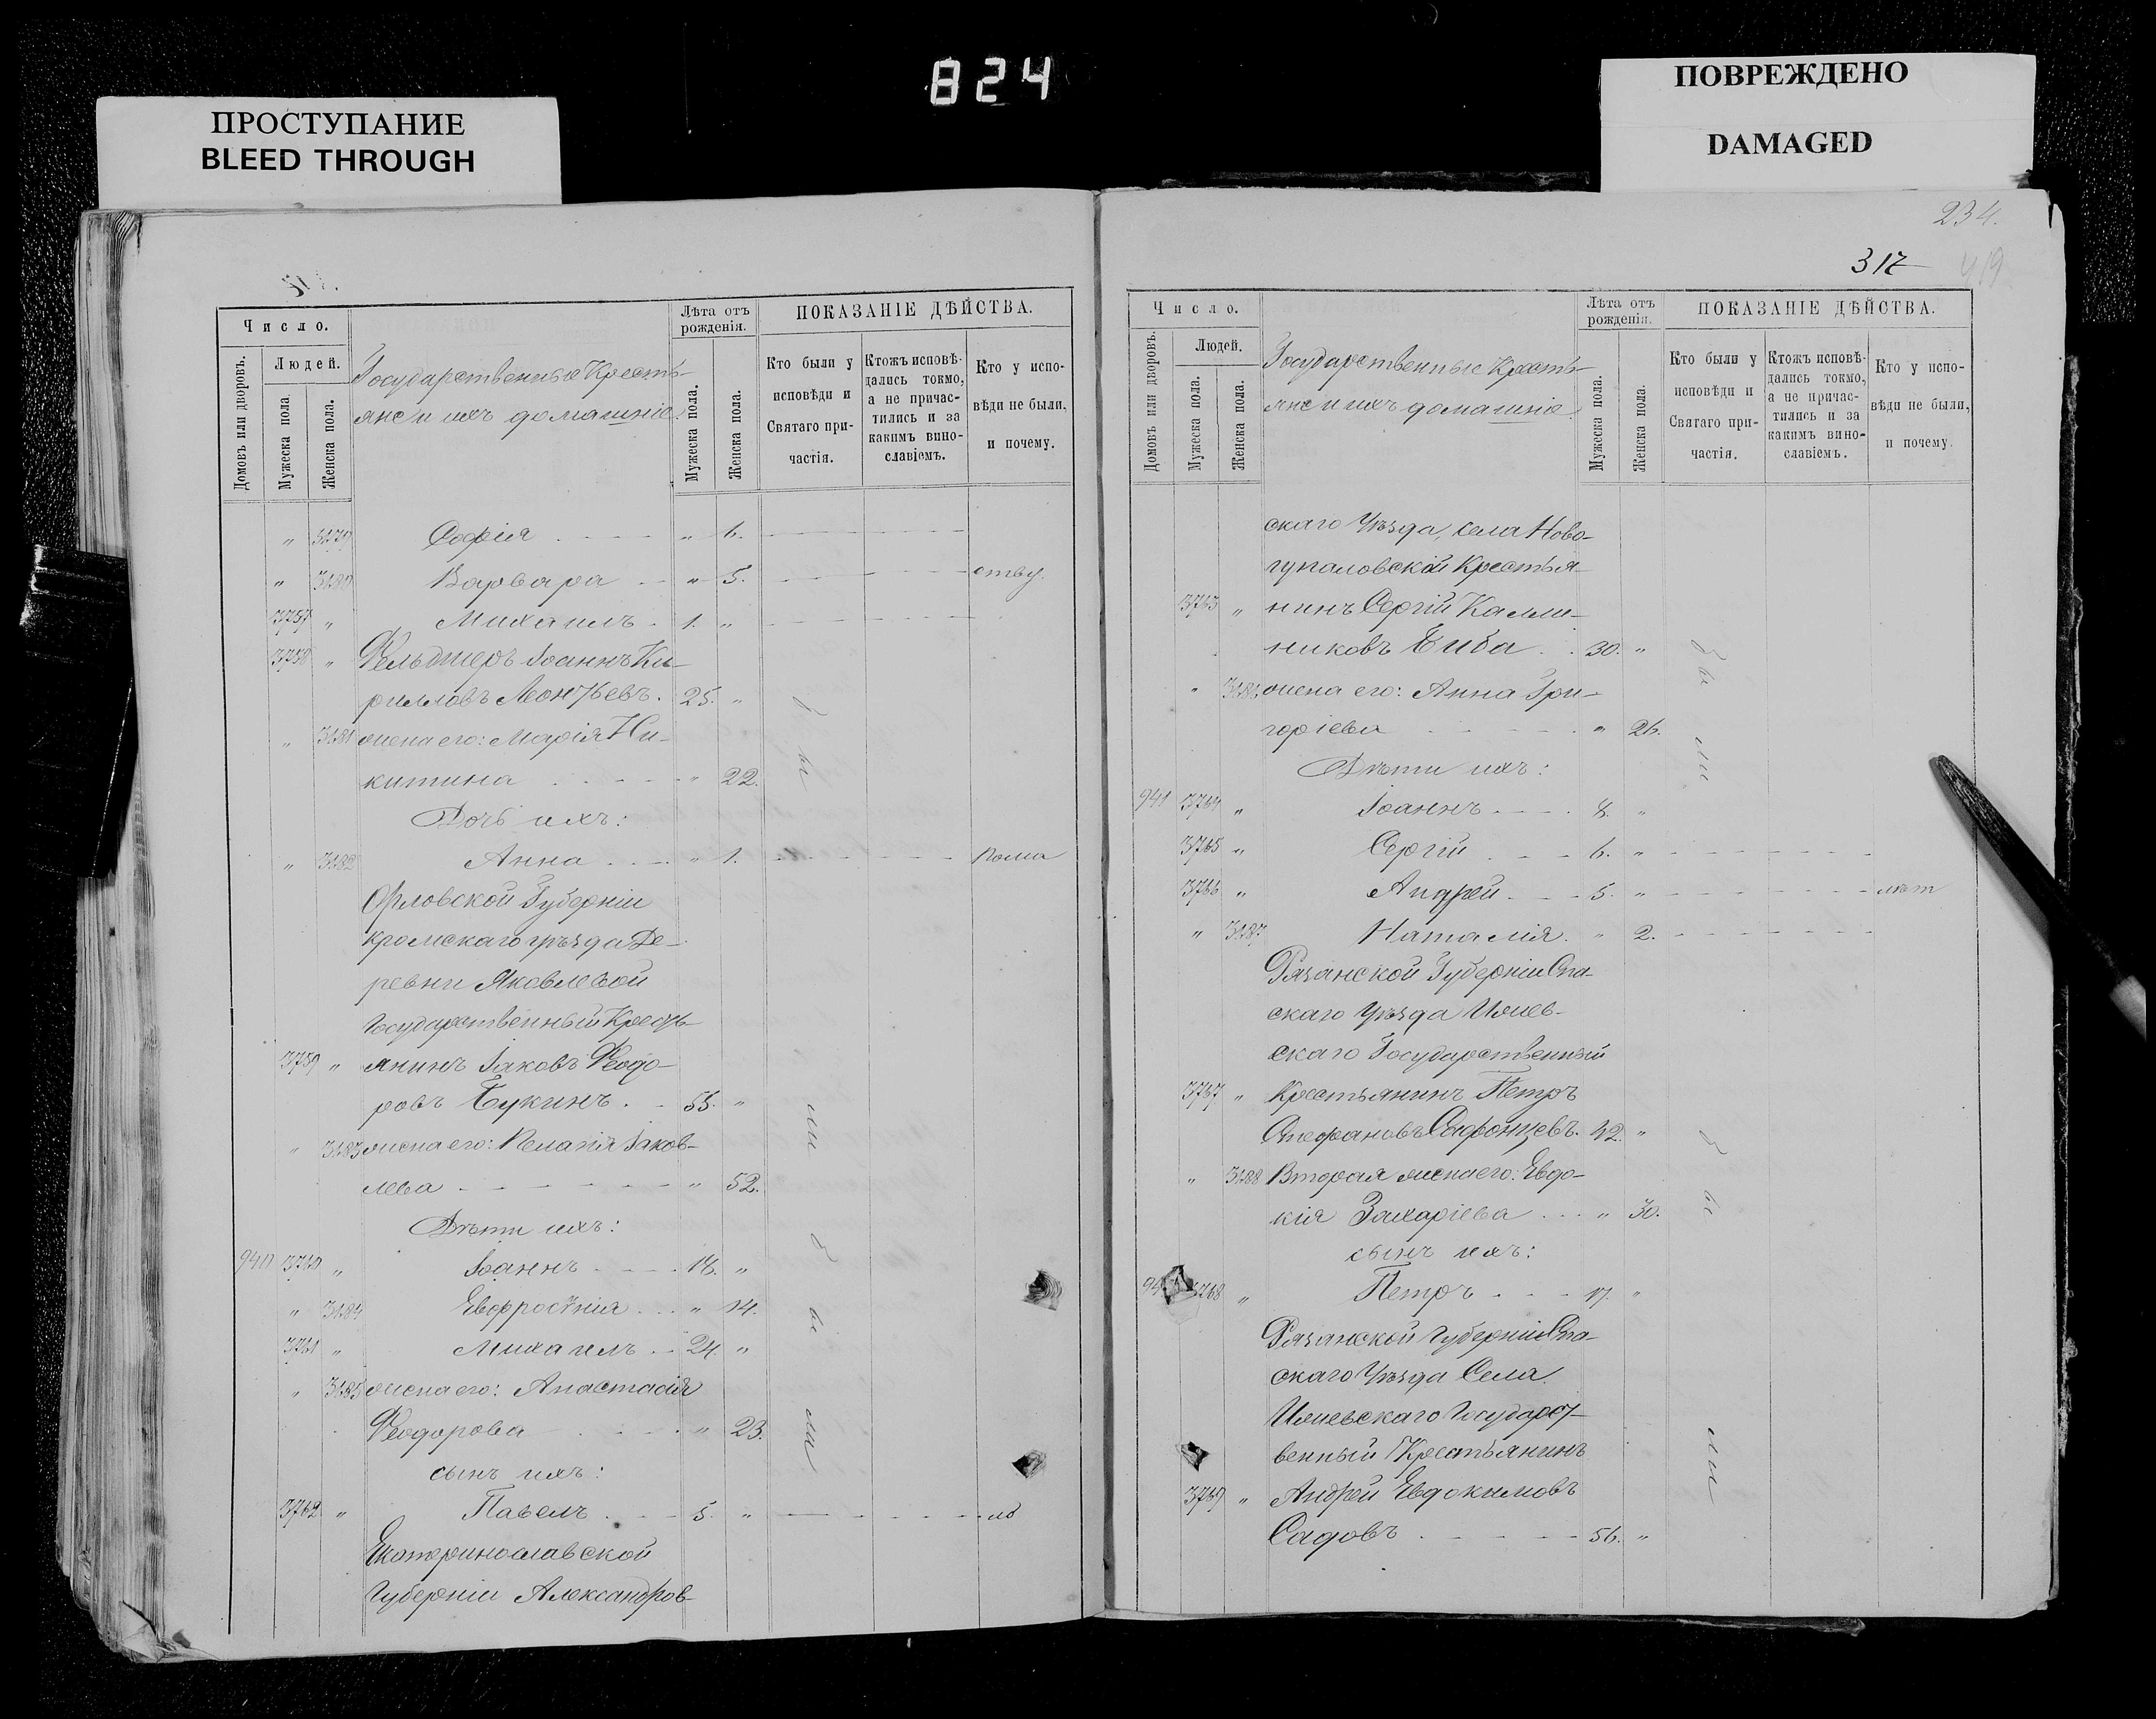 824
ПРОСТУПАНИЕ
BLEED THROUGH
ПОВРЕЖДЕНО
DAMAGED
Число.
Людей.
Домовъ или дворовъ.
Мужеска пола
Женска пола.
Государственные Кресть-
яне и ихъ домашніе.
Лѣта отъ
рожденія.
Мужеска пола.
Женска пола.
ПОКАЗАНІЕ ДѢЙСТВА.
Кто были у
исповѣди и
Святаго при-
частія.
Ктожъ исповѣ-
дались токмо,
а не причас-
тились и за
какимъ вино-
славіемъ.
Кто у испо-
вѣди не были,
и почему.
" 3479 Софія " 6.
" 3480 Варвара " 5. ству.
3757 " Михаилъ 1. "
3758 " Фельдшеръ Іоаннъ Ки-
рилловъ Леонтьевъ. 25. "
" 3481 жена его: Марія Ни-
китина " 22.
Дочь ихъ:
" 3482 Анна " 1. Пома
Орловской Губерніи
Кромскаго уѣзда Де-
ревни Яковлевой
Государственный Кресть-
3759 " янинъ Іаковъ Ѳеодо-
ровъ Букинъ. 55. "
" 3483 жена его: Пелагія Іаков-
лева " 52.
Дѣти ихъ:
940 3760 " Іоаннъ 18. "
" 3484 Евфросинія " 14.
3761 " Михаилъ 24. "
" 3485 жена его: Анастасія
Ѳеодорова " 23.
сынъ ихъ:
3762 " Павелъ 5. "
Екатеринославской
Губерніи Александров-
бы
ли
бы
ли
234.
317
419
Число.
Людей.
Домовъ или дворовъ.
Мужеска пола.
Женска пола.
Государственные Кресть-
яне и ихъ домашніе.
Лѣта отъ
рожденія.
Мужеска пола.
Женска пола.
ПОКАЗАНІЕ ДѢЙСТВА.
Кто были у
исповѣди и
Святаго при-
частія.
Ктожъ исповѣ-
дались токмо,
а не причас-
тились и за
какимъ вино-
славіемъ.
Кто у испо-
вѣди не были,
и почему.
скаго Уѣзда, села Ново-
гупаловской Крестья-
3763 " нинъ Сергій Калли-
никовъ Биба 30. "
" 3486 жена его: Анна Гри-
горіева " 26.
Дѣти ихъ:
941 3764 " Іоаннъ 8. "
3765 " Сергій 6. "
3766 " Андрей 5. " лѣт
" 3487 Наталія. " 2.
Рязанской Губерніи Спа-
скаго Уѣзда Ижев-
скаго Государственный
3767 " Крестьянинъ Петръ
Стефановъ Сафонцевъ. 42. "
" 3488 Вторая жена его: Евдо-
кія Захаріева " 30.
сынъ ихъ:
3768 " Петръ 17. "
Рязанской Губерніи Спа-
скаго Уѣзда Села
Ижевскаго Государст-
венный Крестьянинъ
3769 " Андрей Евдокимовъ
Садовъ 56. "
бы
ли
бы
ли